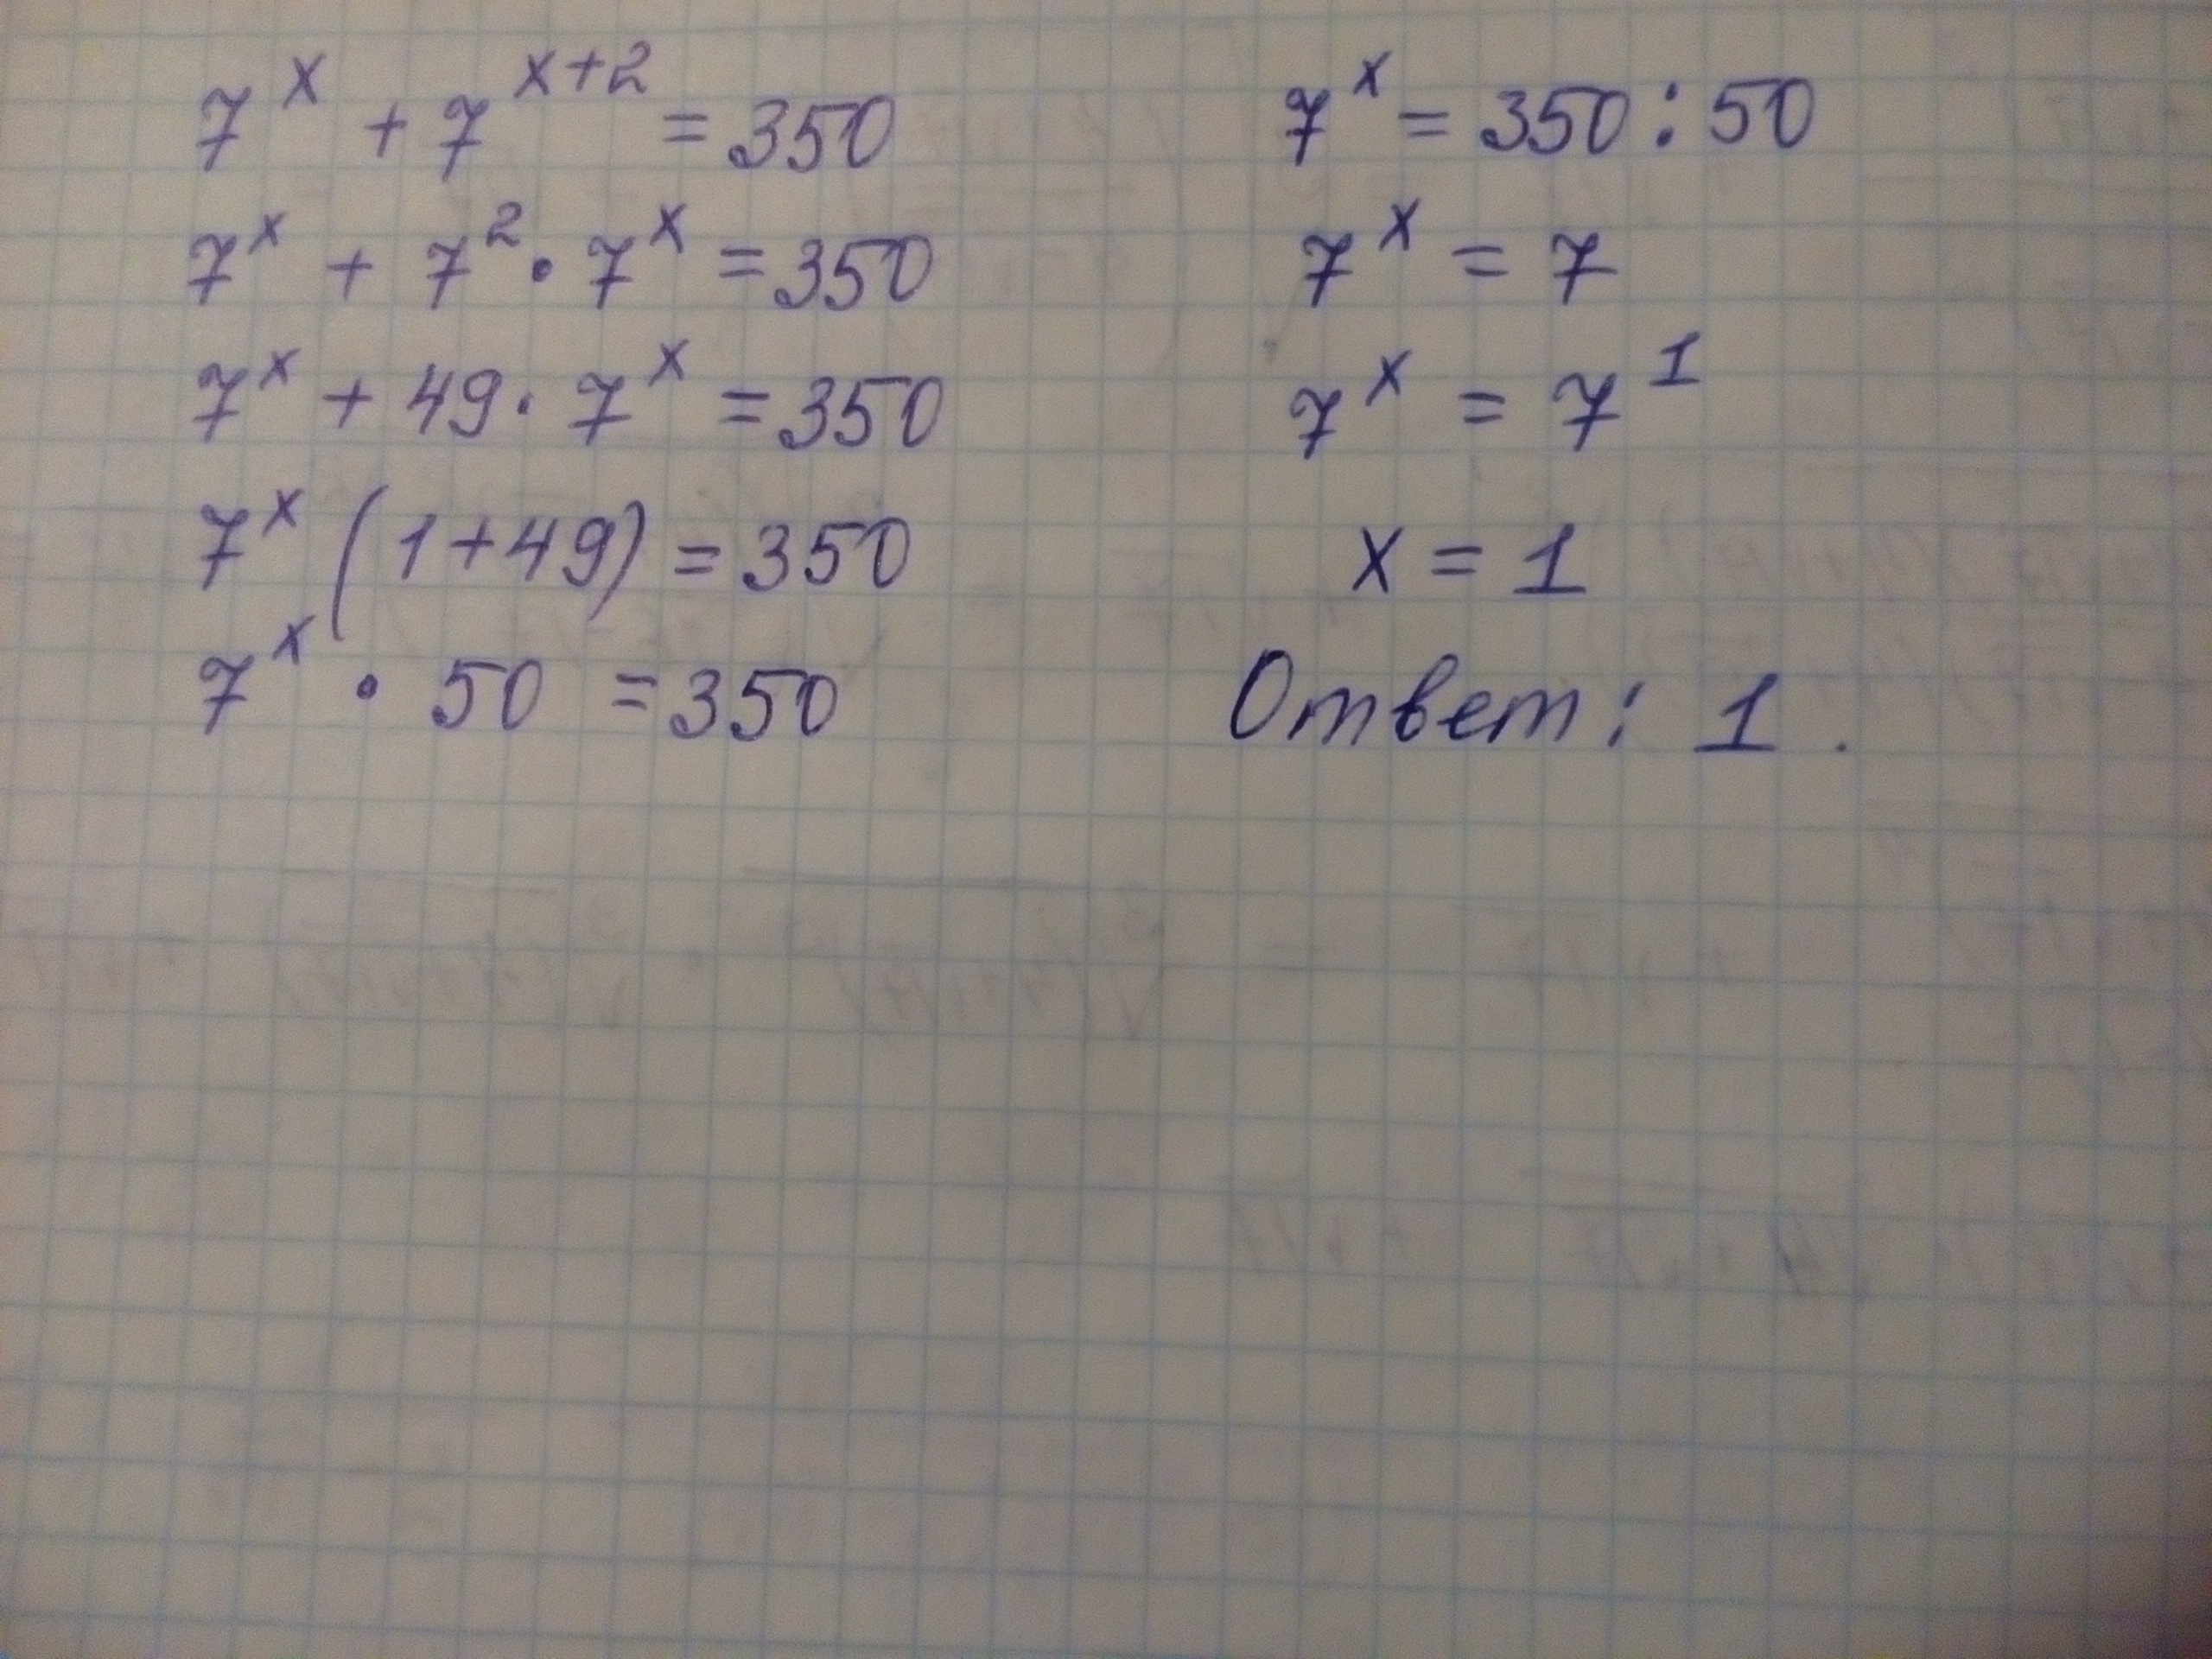 7ˣ + 7ˣ⁺² = 350
7ˣ + 7² · 7ˣ = 350
7ˣ + 49 · 7ˣ = 350
7ˣ (1+49) = 350
7ˣ · 50 = 350
7ˣ = 350 : 50
7ˣ = 7
7ˣ = 7¹
x = 1
Ответ: 1.